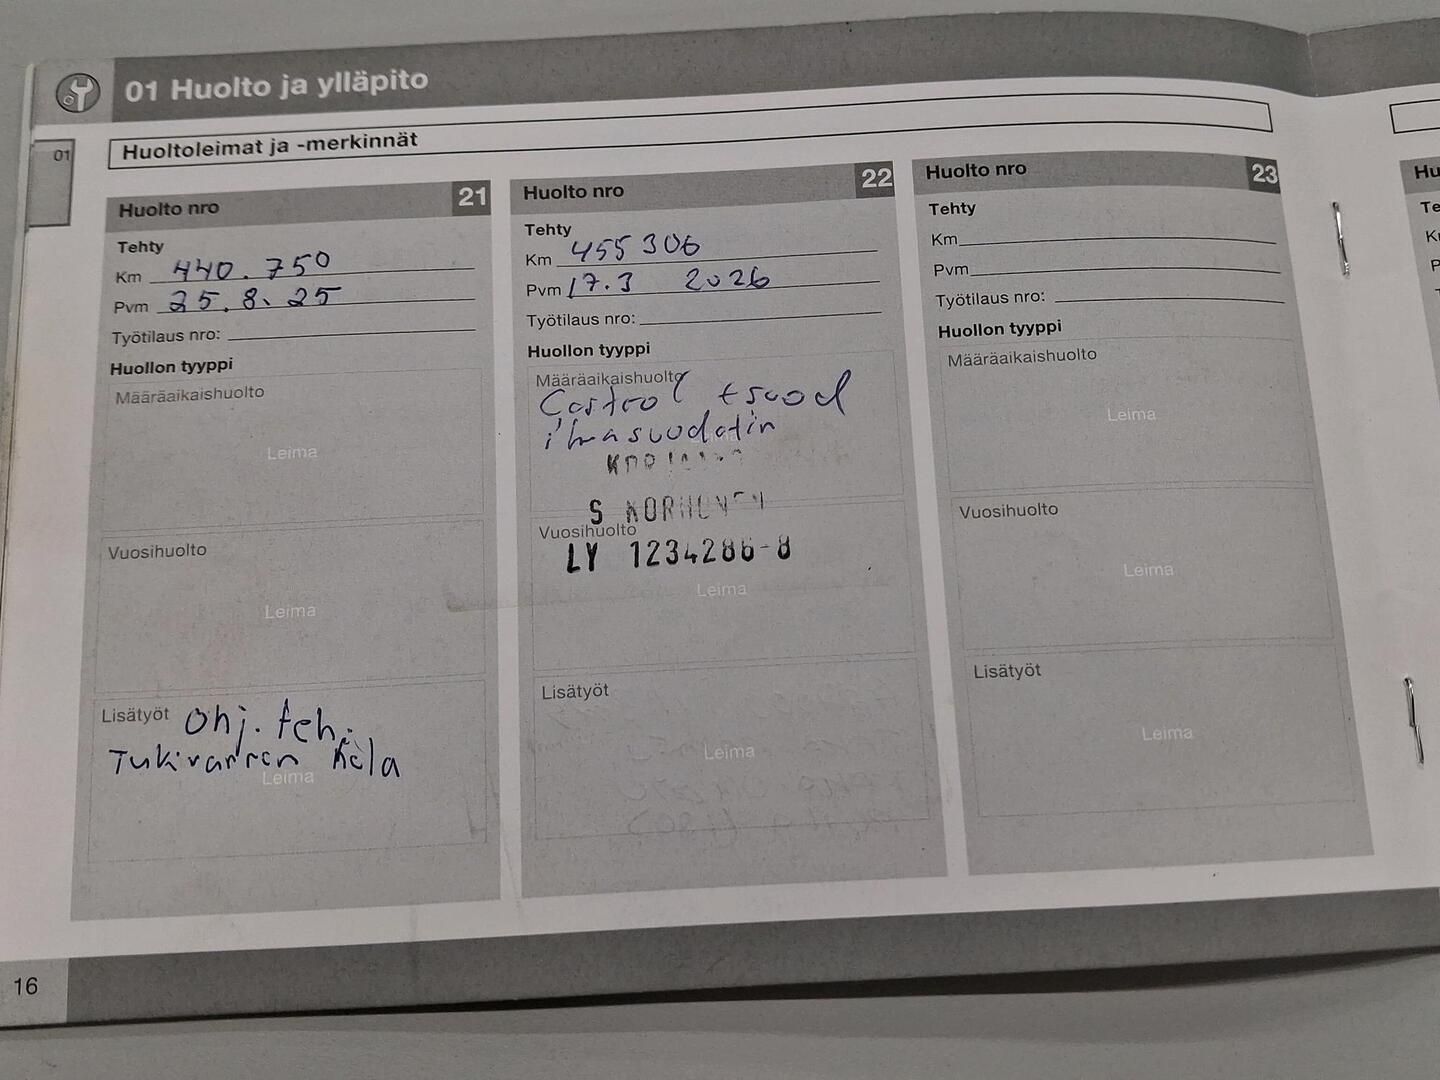 01 Huolto ja ylläpito
01
Huoltoleimat ja -merkinnät
Huolto nro 21
Tehty
Km 440.750
Pvm 25.8.25
Työtilaus nro:
Huollon tyyppi
Määräaikaishuolto
Leima
Vuosihuolto
Leima
Lisätyöt Ohj. teh.
Tukivarren hela
Leima
Huolto nro 22
Tehty
Km 455 306
Pvm 17.3 2026
Työtilaus nro:
Huollon tyyppi
Määräaikaishuolto
Castrol + suod
ilmasuodatin
S KORHONEN
Vuosihuolto
LY 1234286-8
Leima
Lisätyöt
Leima
Huolto nro 23
Tehty
Km
Pvm
Työtilaus nro:
Huollon tyyppi
Määräaikaishuolto
Leima
Vuosihuolto
Leima
Lisätyöt
Leima
16